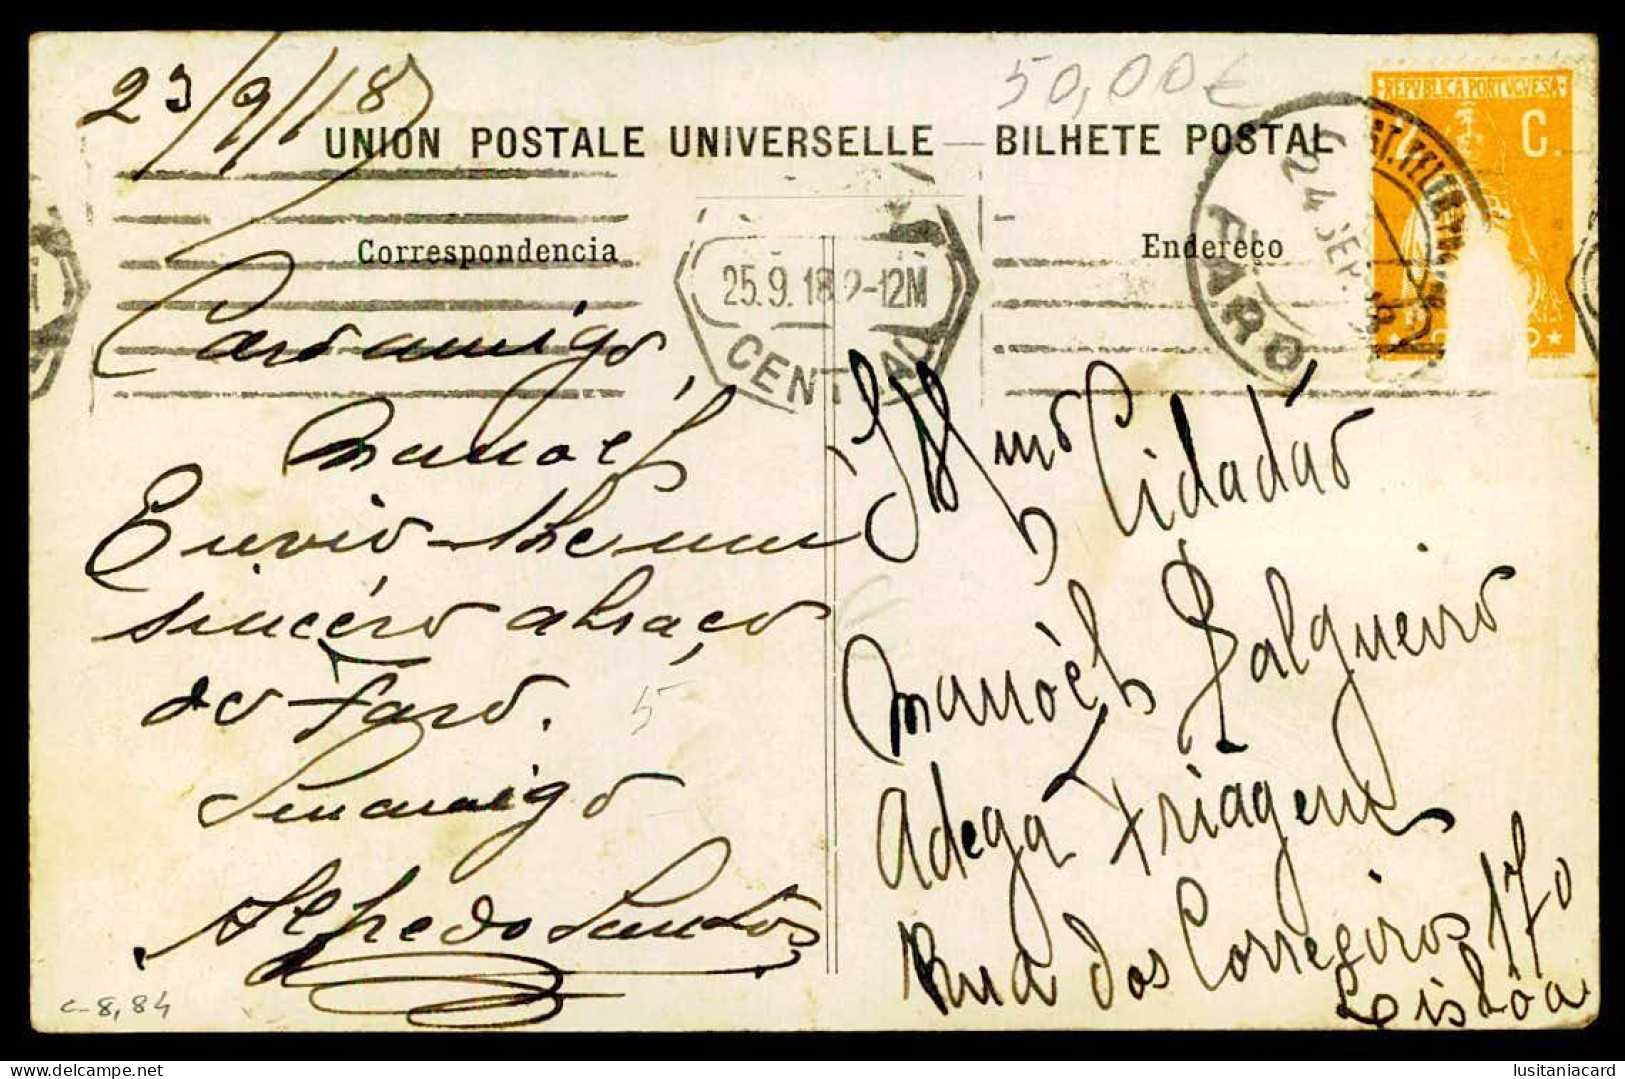 23/9/18
50,00€
UNION POSTALE UNIVERSELLE — BILHETE POSTAL
REPVBLICA PORTVGVESA
C.
Correspondencia
Endereço
25.9.18 2-12M
CENTRAL
24 SET
FARO
Caro amigo
Manoel
Envio-lhe um
sincéro abraço
de Faro.
Seu amigo
Alfredo Santos
Illmo Cidadão
Manoél Salgueiro
Adega Friagem
Rua dos Correeiros 170
Lisbôa
5
c-8,84
delcampe.net
lusitaniacard